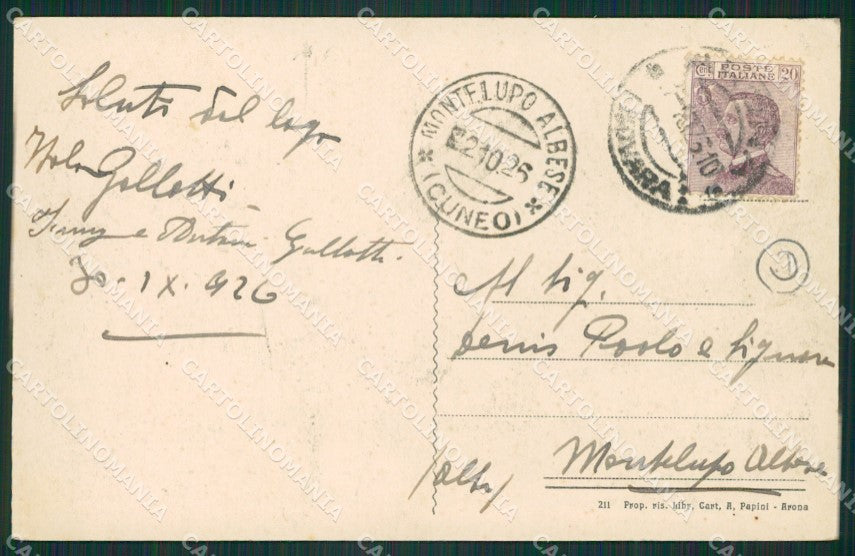 Saluti dal lago
Gallotti
Gallotti
30 - IX - 926
MONTELUPO ALBESE
2.10.26
(CUNEO)
(NOVARA)
POSTE
ITALIANE
CENT.
20
D
Al Sig.
Denis Paolo e Signora
(Alba)
Montelupo Albese
211 Prop. ris. libr. Cart. A. Papini - Arona
CARTOLINOMANIA